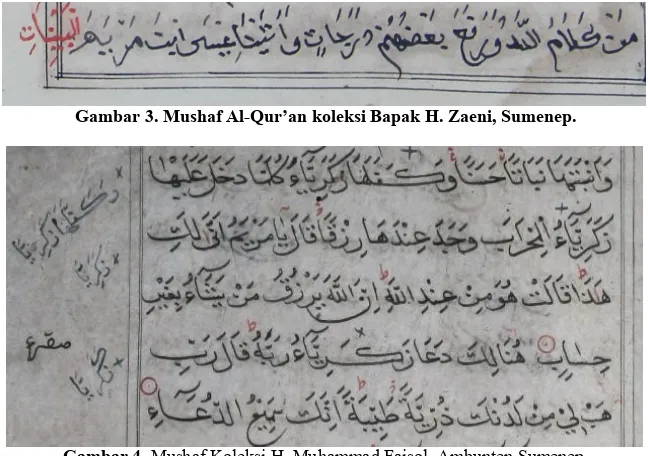 مَنْ كَلَّامُ اللّٰهُ وَرَفَعَ بَعْضَهُمْ دَرَجَاتٍ وَاٰتَيْنَا عِيسَى ابْنَ مَرْيَمَ الْبَيِّنَاتِ
Gambar 3. Mushaf Al-Qur’an koleksi Bapak H. Zaeni, Sumenep.
وَاَنْبَتَهَا نَبَاتًا حَسَنًا وَكَفَّلَهَا زَكَرِيَّآءُ كُلَّمَا دَخَلَ عَلَيْهَا
زَكَرِيَّآءُ الْمِحْرَابَ وَجَدَ عِنْدَهَا رِزْقًا قَالَ يَا مَرْيَمُ اَنّٰى لَكِ
هٰذَا قَالَتْ هُوَ مِنْ عِنْدِ اللّٰهِ اِنَّ اللّٰهَ يَرْزُقُ مَنْ يَشَآءُ بِغَيْرِ
حِسَابٍ هُنَالِكَ دَعَا زَكَرِيَّآءُ رَبَّهُ قَالَ رَبِّ
هَبْ لِي مِنْ لَدُنْكَ ذُرِّيَّةً طَيِّبَةً اِنَّكَ سَمِيعُ الدُّعَآءِ
زكريا
زكريا
Gambar 4. Mushaf Koleksi H. Muhammad Faisol, Ambunten Sumenep